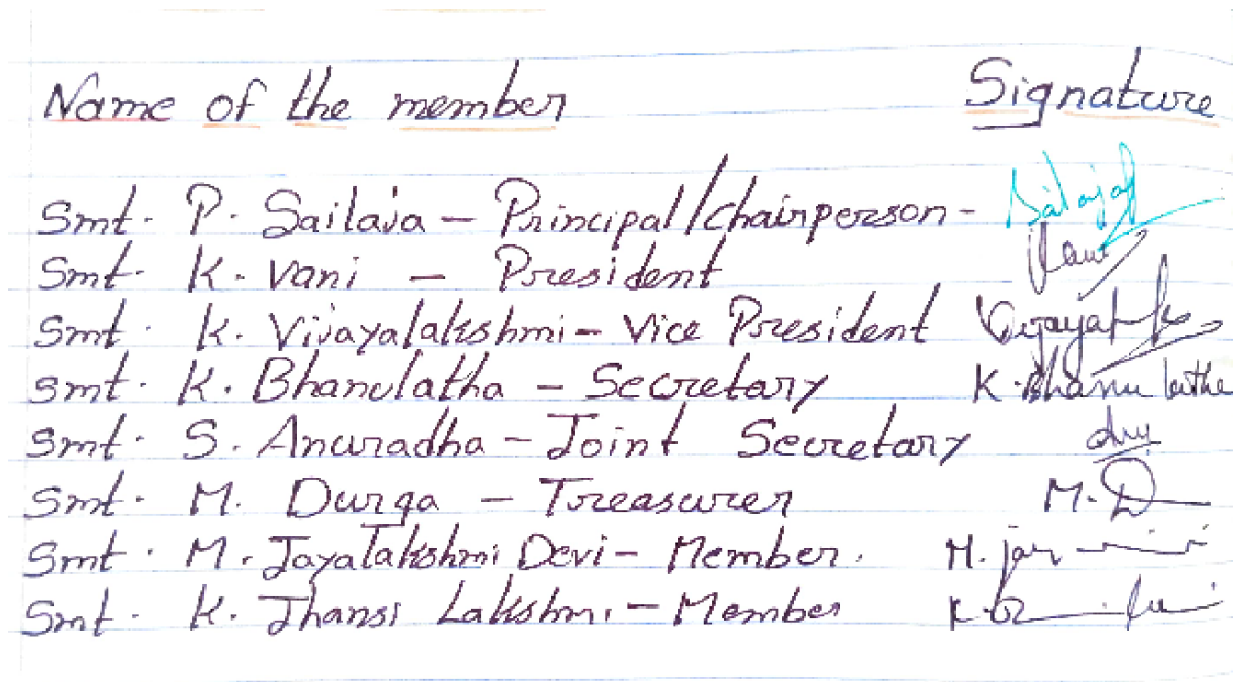 Name of the member Signature
Smt. P. Sailaja - Principal/chairperson - Sailaja
Smt. K. Vani - President Vani
Smt. K. Vijayalakshmi - Vice President
Smt. K. Bhanulatha - Secretary K. Bhanu latha
Smt. S. Anuradha - Joint Secretary
Smt. M. Durga - Treasurer M. D
Smt. M. Jayalakshmi Devi - Member. M. jay
Smt. K. Jhansi Lakshmi - Member